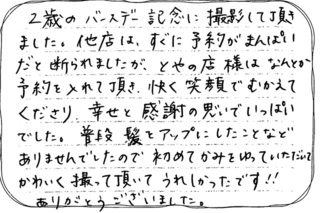 2歳の バースデー記念に 撮影して頂き
ました。他店は、すぐに予約がまんぱい
だと断られましたが、とやの店様は なんとか
予約を入れて頂き、快く笑顔でむかえて
くださり 幸せと感謝の思いでいっぱい
でした。普段 髪をアップにしたことなど
ありませんでしたので 初めてかみをゆっていただいて
かわいく撮って頂いて うれしかったです!!
ありがとうございました。